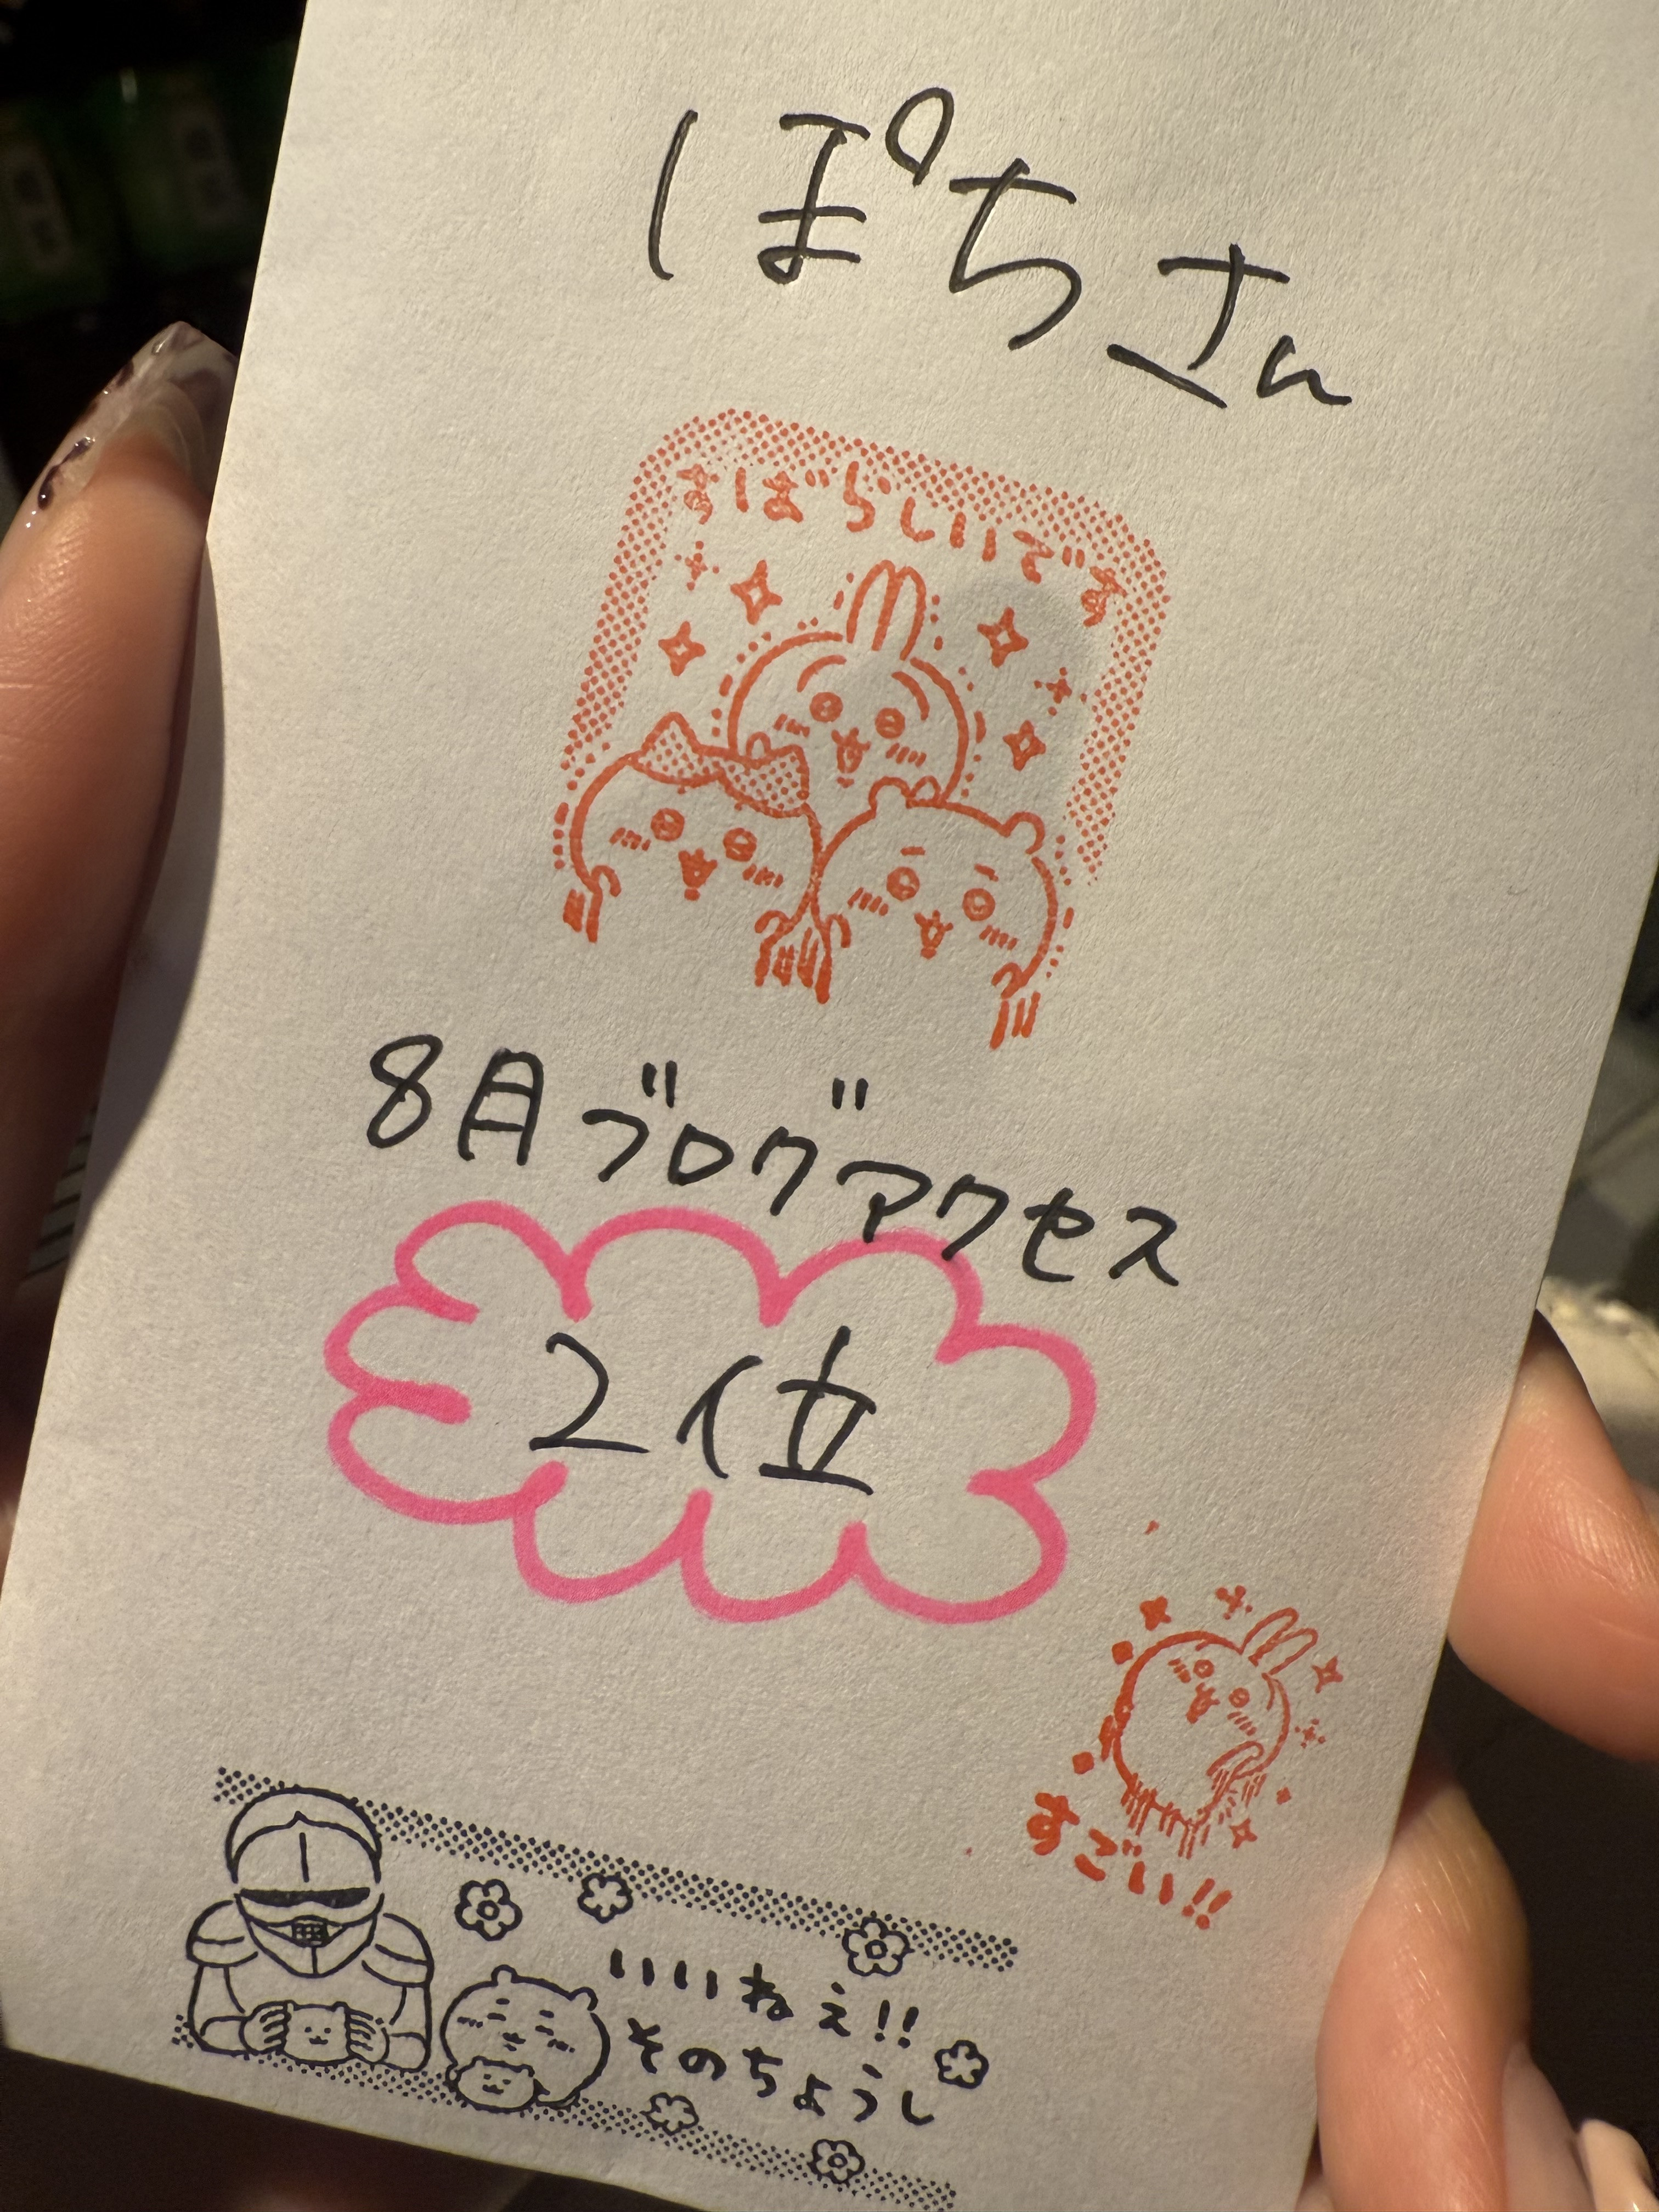 ぽちさん
すばらしいです
8月ブログアクセス
2位
すごい!!
いいねぇ!!
そのちょうし